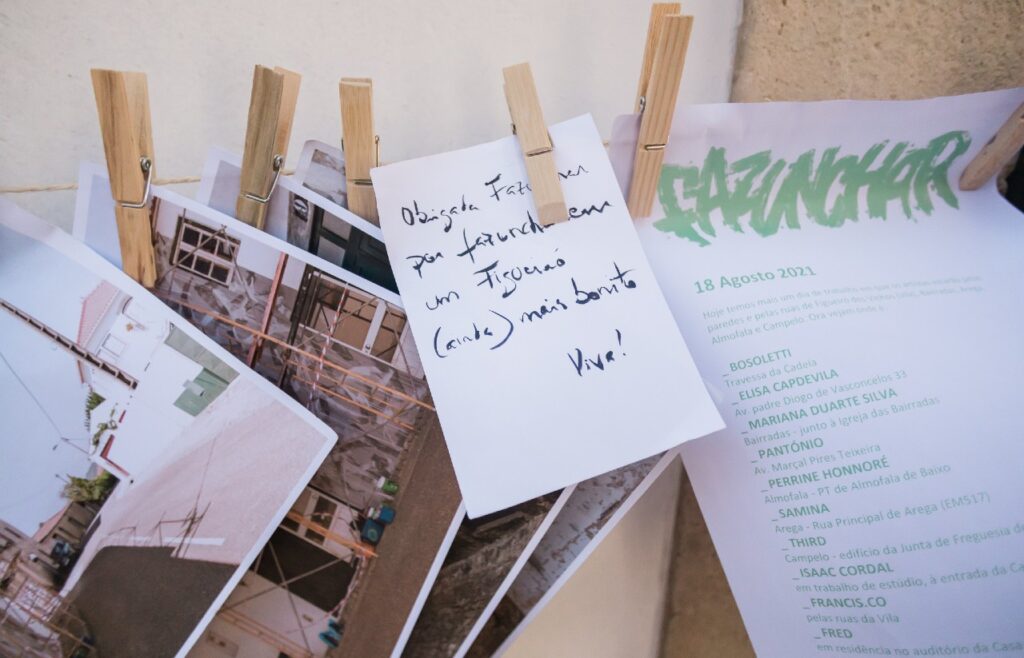 Obrigada
por
um Figueiró
(ainda) mais bonito
Viva!
FAZUNCHAR
18 Agosto 2021
Hoje temos mais um dia de trabalho em que os artistas estarão pelas
paredes e pelas ruas de Figueiró dos Vinhos
Almofala e Campelo. Ora vejam onde
_BOSOLETTI
Travessa da Cadeia
_ELISA CAPDEVILA
Av. padre Diogo de Vasconcelos 33
_MARIANA DUARTE SILVA
Bairradas - junto à Igreja das Bairradas
_PANTÓNIO
Av. Marçal Pires Teixeira
_PERRINE HONNORÉ
Almofala - PT de Almofala de Baixo
_SAMINA
Arega - Rua Principal de Arega (EM517)
_THIRD
Campelo - edifício da Junta de Freguesia
_ISAAC CORDAL
em trabalho de estúdio, à entrada da
_FRANCIS.CO
pelas ruas da Vila
_FRED
em residência no auditório da Casa